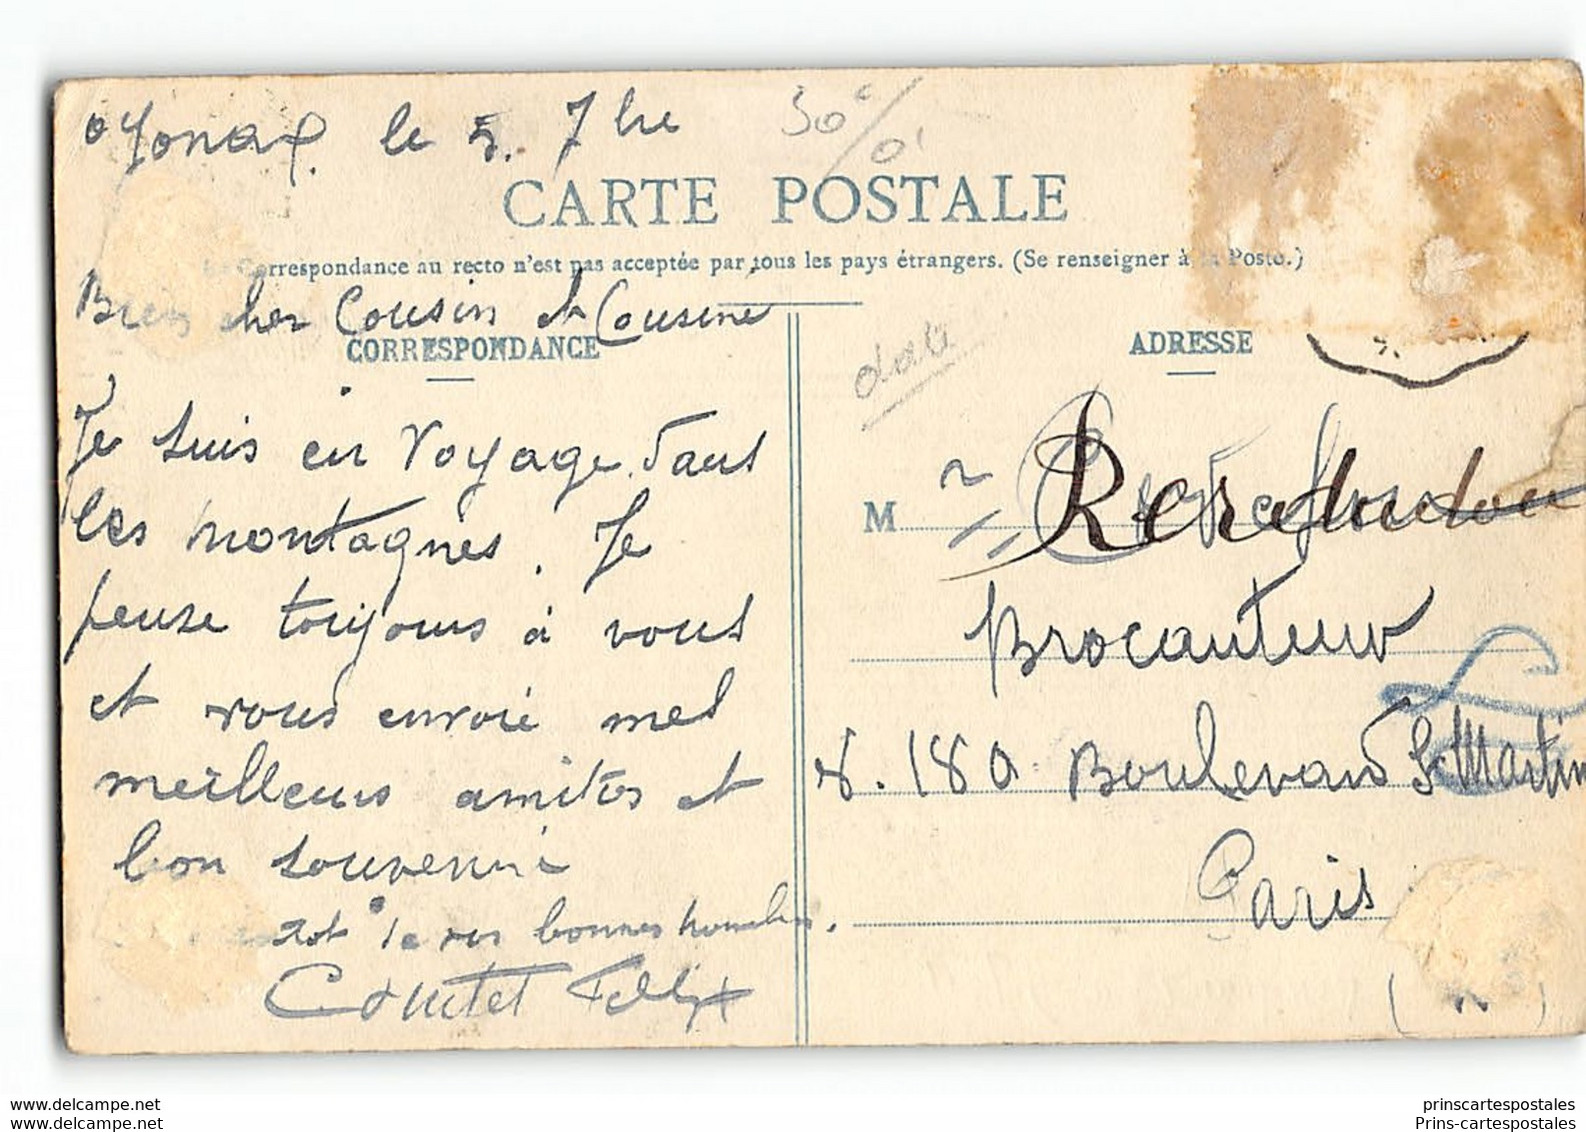 oyonax. le 5. 7bre
30c/
CARTE POSTALE
Correspondance au recto n'est pas acceptée par tous les pays étrangers. (Se renseigner à la Poste.)
Bien cher Cousin et Cousine
CORRESPONDANCE
Je suis en voyage dans
les montagnes. Je
pense toujours à vous
et vous envoie mes
meilleurs amités et
bon souvenir
de vos bonnes
Coutet Félix
ADRESSE
M r
Brocanteur
180 Boulevard St Martin
Paris
www.delcampe.net
prinscartespostales
Prins-cartespostales